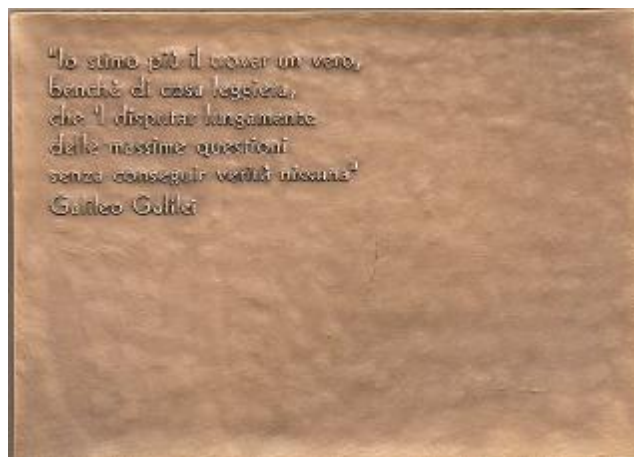 "Io stimo più il trovar un vero,
benchè di cosa leggiera,
che 'l disputar lungamente
delle massime questioni
senza conseguir verità nissuna"
Galileo Galilei